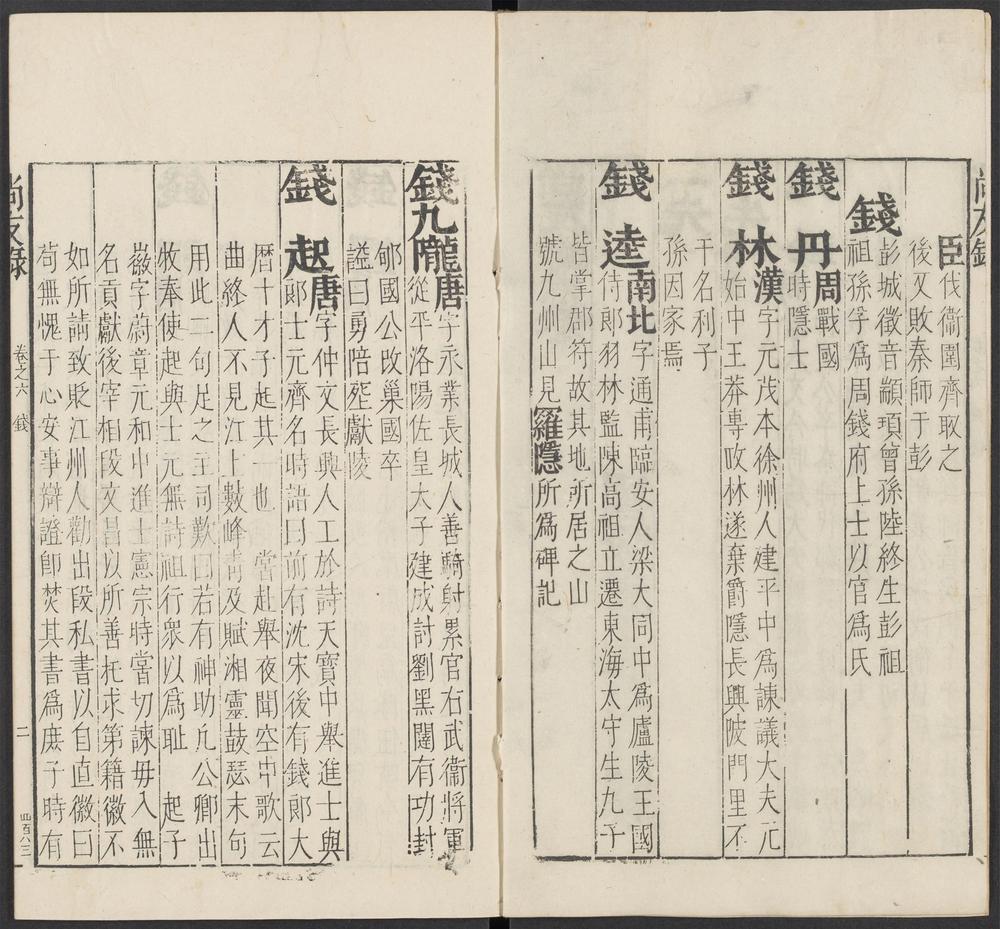 尚友錄
臣伐衞圍齊取之
後又敗秦師于彭
錢彭城徵音顓頊曾孫陸終生彭祖
祖孫孚爲周錢府上士以官爲氏
錢丹周戰國
時隱士
錢林漢字元茂本徐州人建平中爲諫議大夫元
始中王莽專政林遂棄爵隱長興陂門里不
干名利子
孫因家焉
錢逵南北字通甫臨安人梁大同中爲廬陵王國
侍郎羽林監陳高祖立遷東海太守生九子
皆掌郡符故其地所居之山
號九州山見羅隱所爲碑記
錢九隴唐字永業長城人善騎射累官右武衞將軍
從平洛陽佐皇太子建成討劉黑闥有功封
郇國公改巢國卒
謚曰勇陪塟獻陵
錢起唐字仲文長興人工於詩天寶中舉進士與
郎士元齊名時語曰前有沈宋後有錢郎大
曆十才子起其一也嘗赴舉夜聞空中歌云
曲終人不見江上數峰靑及賦湘靈鼓瑟末句
用此二句足之主司歎曰若有神助凢公卿出
牧奉使起與士元無詩祖行衆以爲耻起子
徽字蔚章元和中進士憲宗時嘗切諫毋入無
名貢獻後宰相段文昌以所善托求第籍徽不
如所請致貶江州人勸出段私書以自直徽曰
苟無愧于心安事辯證卽焚其書爲庶子時有
尚友錄
卷之六
錢
二
四百八三